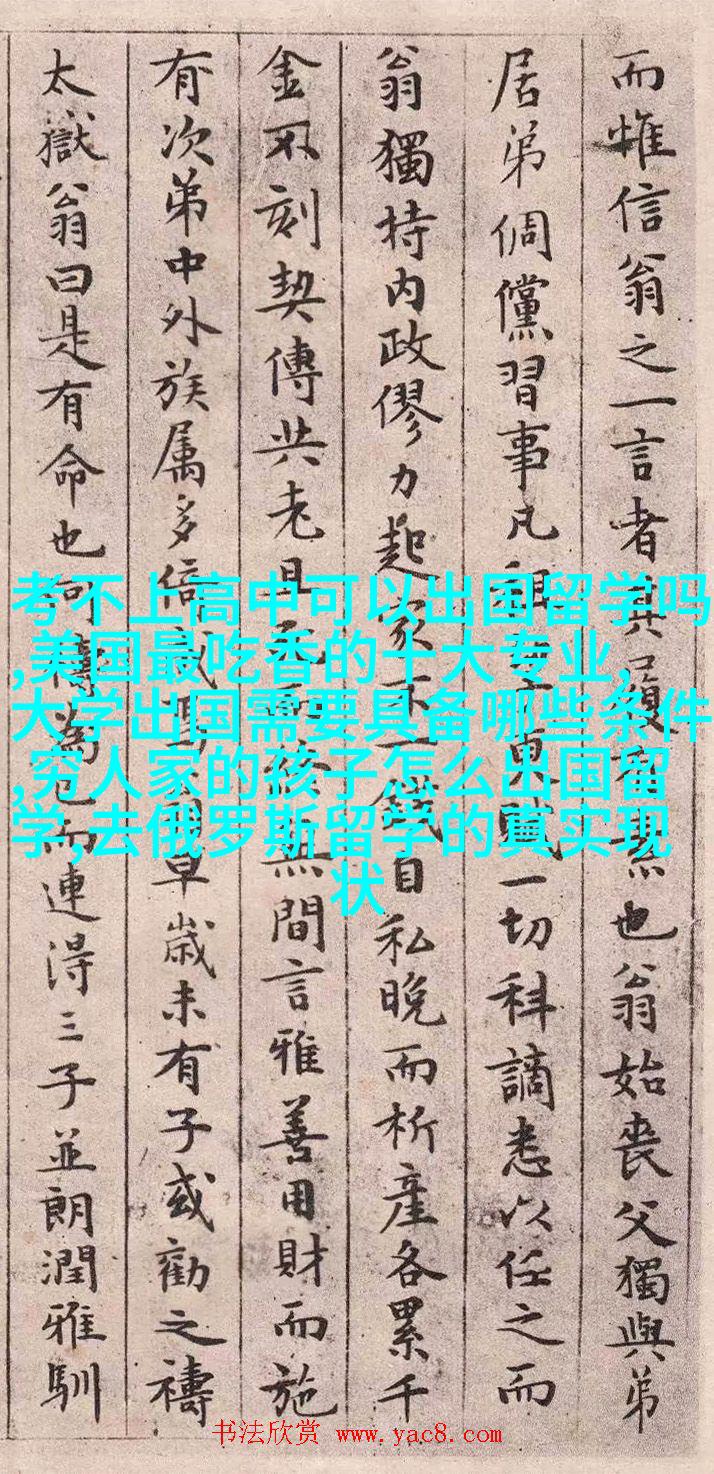 而惟信翁之一言者其履
也翁始喪父獨與弟
居弟倜儻習事凡租
一切科謫悉以任之而
翁獨持内政僇力起家不
一錢自私晚而析產各累千
金不刻契傳共老且
無間言雅善用財而施
有次弟中外族属多倍
早歲未有子或勸之禱
太嶽翁曰是有命也何禱為已而連得三子並朗潤雅馴
考不上高中可以出国留学吗
,美国最吃香的十大专业,
大学出国需要具备哪些条件
,穷人家的孩子怎么出国留
学,去俄罗斯留学的真实现
状
书法欣赏 www.yac8.com